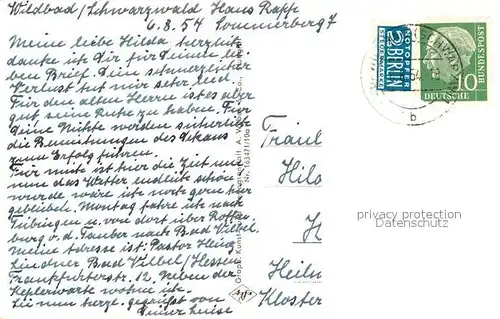 Wildbad/Schwarzwald Haus Rapp
6.8.54 Sommerberg 7
Meine liebe Hilda herzlich
danke ich Dir für Deinen lie-
ben Brief. Dein schmerzlicher
Verlust tut mir sehr leid.
Für den alten Herrn ist es aber
gut seine Ruhe zu haben. Für
Deine Nichte werden sicherlich
die Bemühungen des Dekans
zum Erfolg führen.
Für mich ist hier die Zeit um
nun das Wetter endlich schön
wurde wäre ich noch gern hier
geblieben. Montag fahre ich nach
Tübingen u. von dort über Rothen-
burg o. d. Tauber nach Bad Vilbel.
Meine Adresse ist: Pastor Heinz
Lindner Bad Vilbel/Hessen
Frankfurterstr. 12. Neben der
Keplerwarte wohne ich.
Sei nun herzl. gegrüßt von
Deiner Luise
Fräul
Hild
H
Heiln
Kloster
Nr. 163471/10a
NOTOPFER
2 BERLIN
STEUERMARKE
10
DEUTSCHE
BUNDESPOST
b
privacy protection
Datenschutz